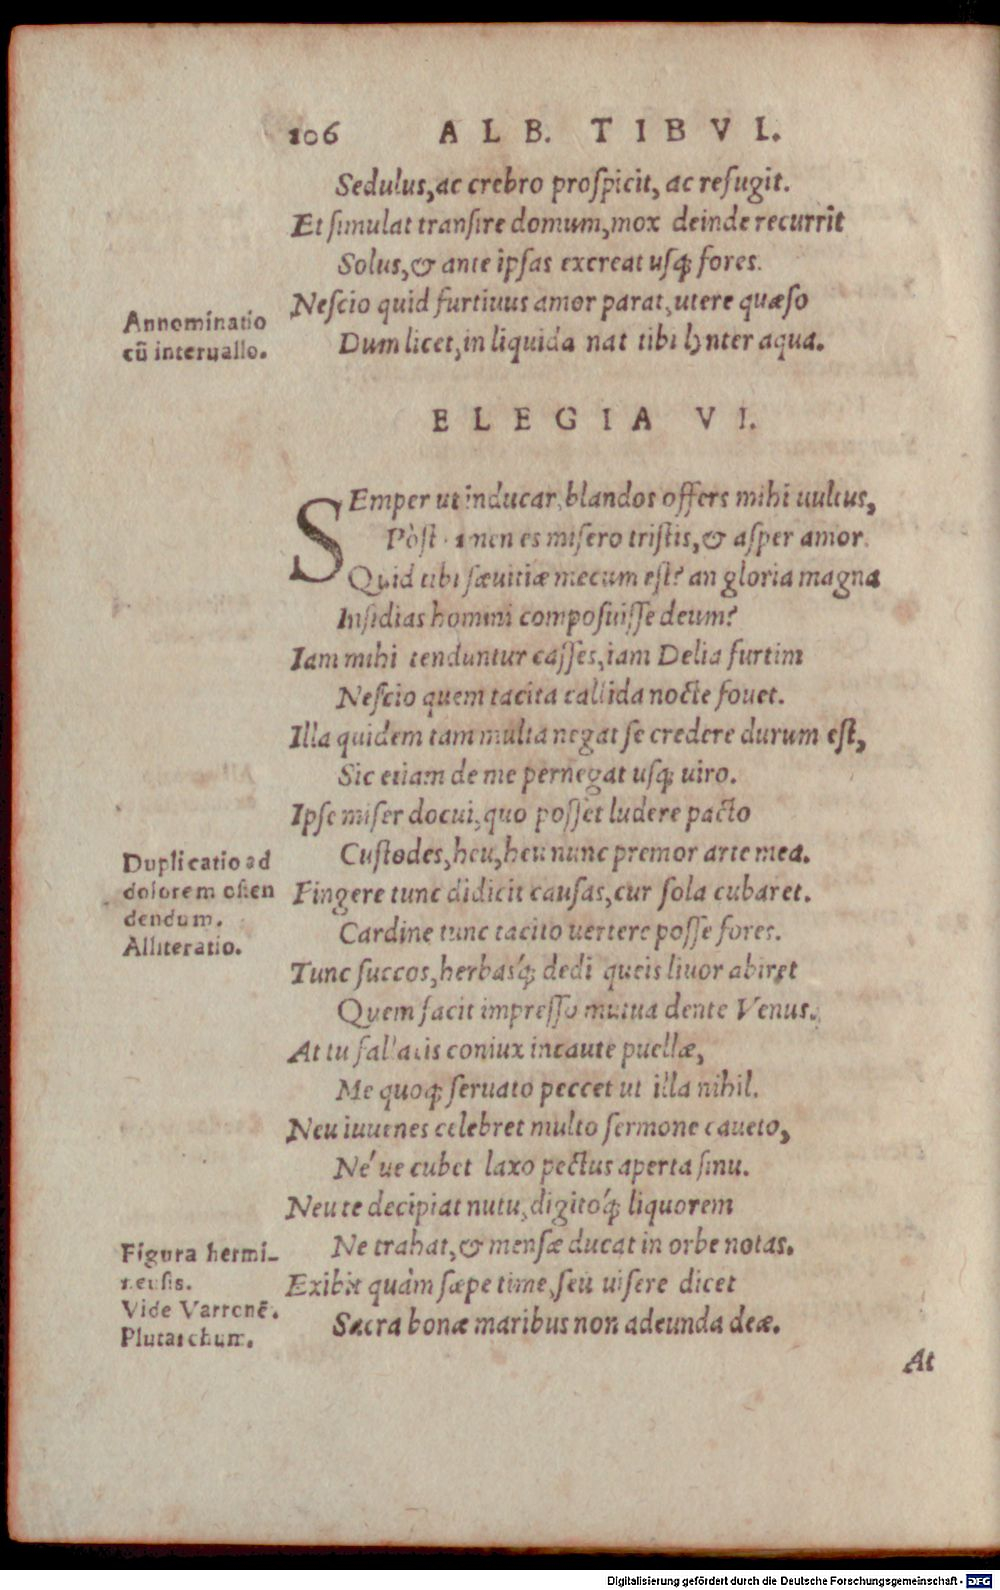 106 ALB. TIBVL.
Sedulus, ac crebro proſpicit, ac refugit.
Et ſimulat tranſire domum, mox deinde recurrit
Solus, & ante ipſas excreat uſq; fores.
Neſcio quid furtiuus amor parat, utere quæſo
Annominatio
cū interuallo.
Dum licet, in liquida nat tibi lynter aqua.
ELEGIA VI.
SEmper ut inducar, blandos offers mihi uultus,
Pòſt tamen es miſero triſtis, & aſper amor.
Quid tibi ſæuitiæ mecum eſt? an gloria magna
Inſidias homini compoſuiſſe deum?
Iam mihi tenduntur caſſes, iam Delia furtim
Neſcio quem tacita callida nocte fouet.
Illa quidem tam multa negat ſe credere durum eſt,
Sic etiam de me pernegat uſq; uiro.
Ipſe miſer docui, quo poſſet ludere pacto
Cuſtodes, heu, heu nunc premor arte mea.
Duplicatio ad
dolorem oſten
dendum.
Alliteratio.
Fingere tunc didicit cauſas, cur ſola cubaret.
Cardine tunc tacito uertere poſſe fores.
Tunc ſuccos, herbasq́; dedi queis liuor abiret
Quem facit impreſſo mutua dente Venus.
At tu fallacis coniux incaute puellæ,
Me quoq; ſeruato peccet ut illa nihil.
Neu iuuenes celebret multo ſermone caueto,
Né ue cubet laxo pectus aperta ſinu.
Neu te decipiat nutu, digitoq́; liquorem
Ne trahat, & menſæ ducat in orbe notas.
Figura hermi-
neuſis.
Vide Varronē.
Plutarchum.
Exibit quàm ſæpe time, ſeu uiſere dicet
Sacra bonæ maribus non adeunda deæ.
At
Digitalisierung gefördert durch die Deutsche Forschungsgemeinschaft - DFG